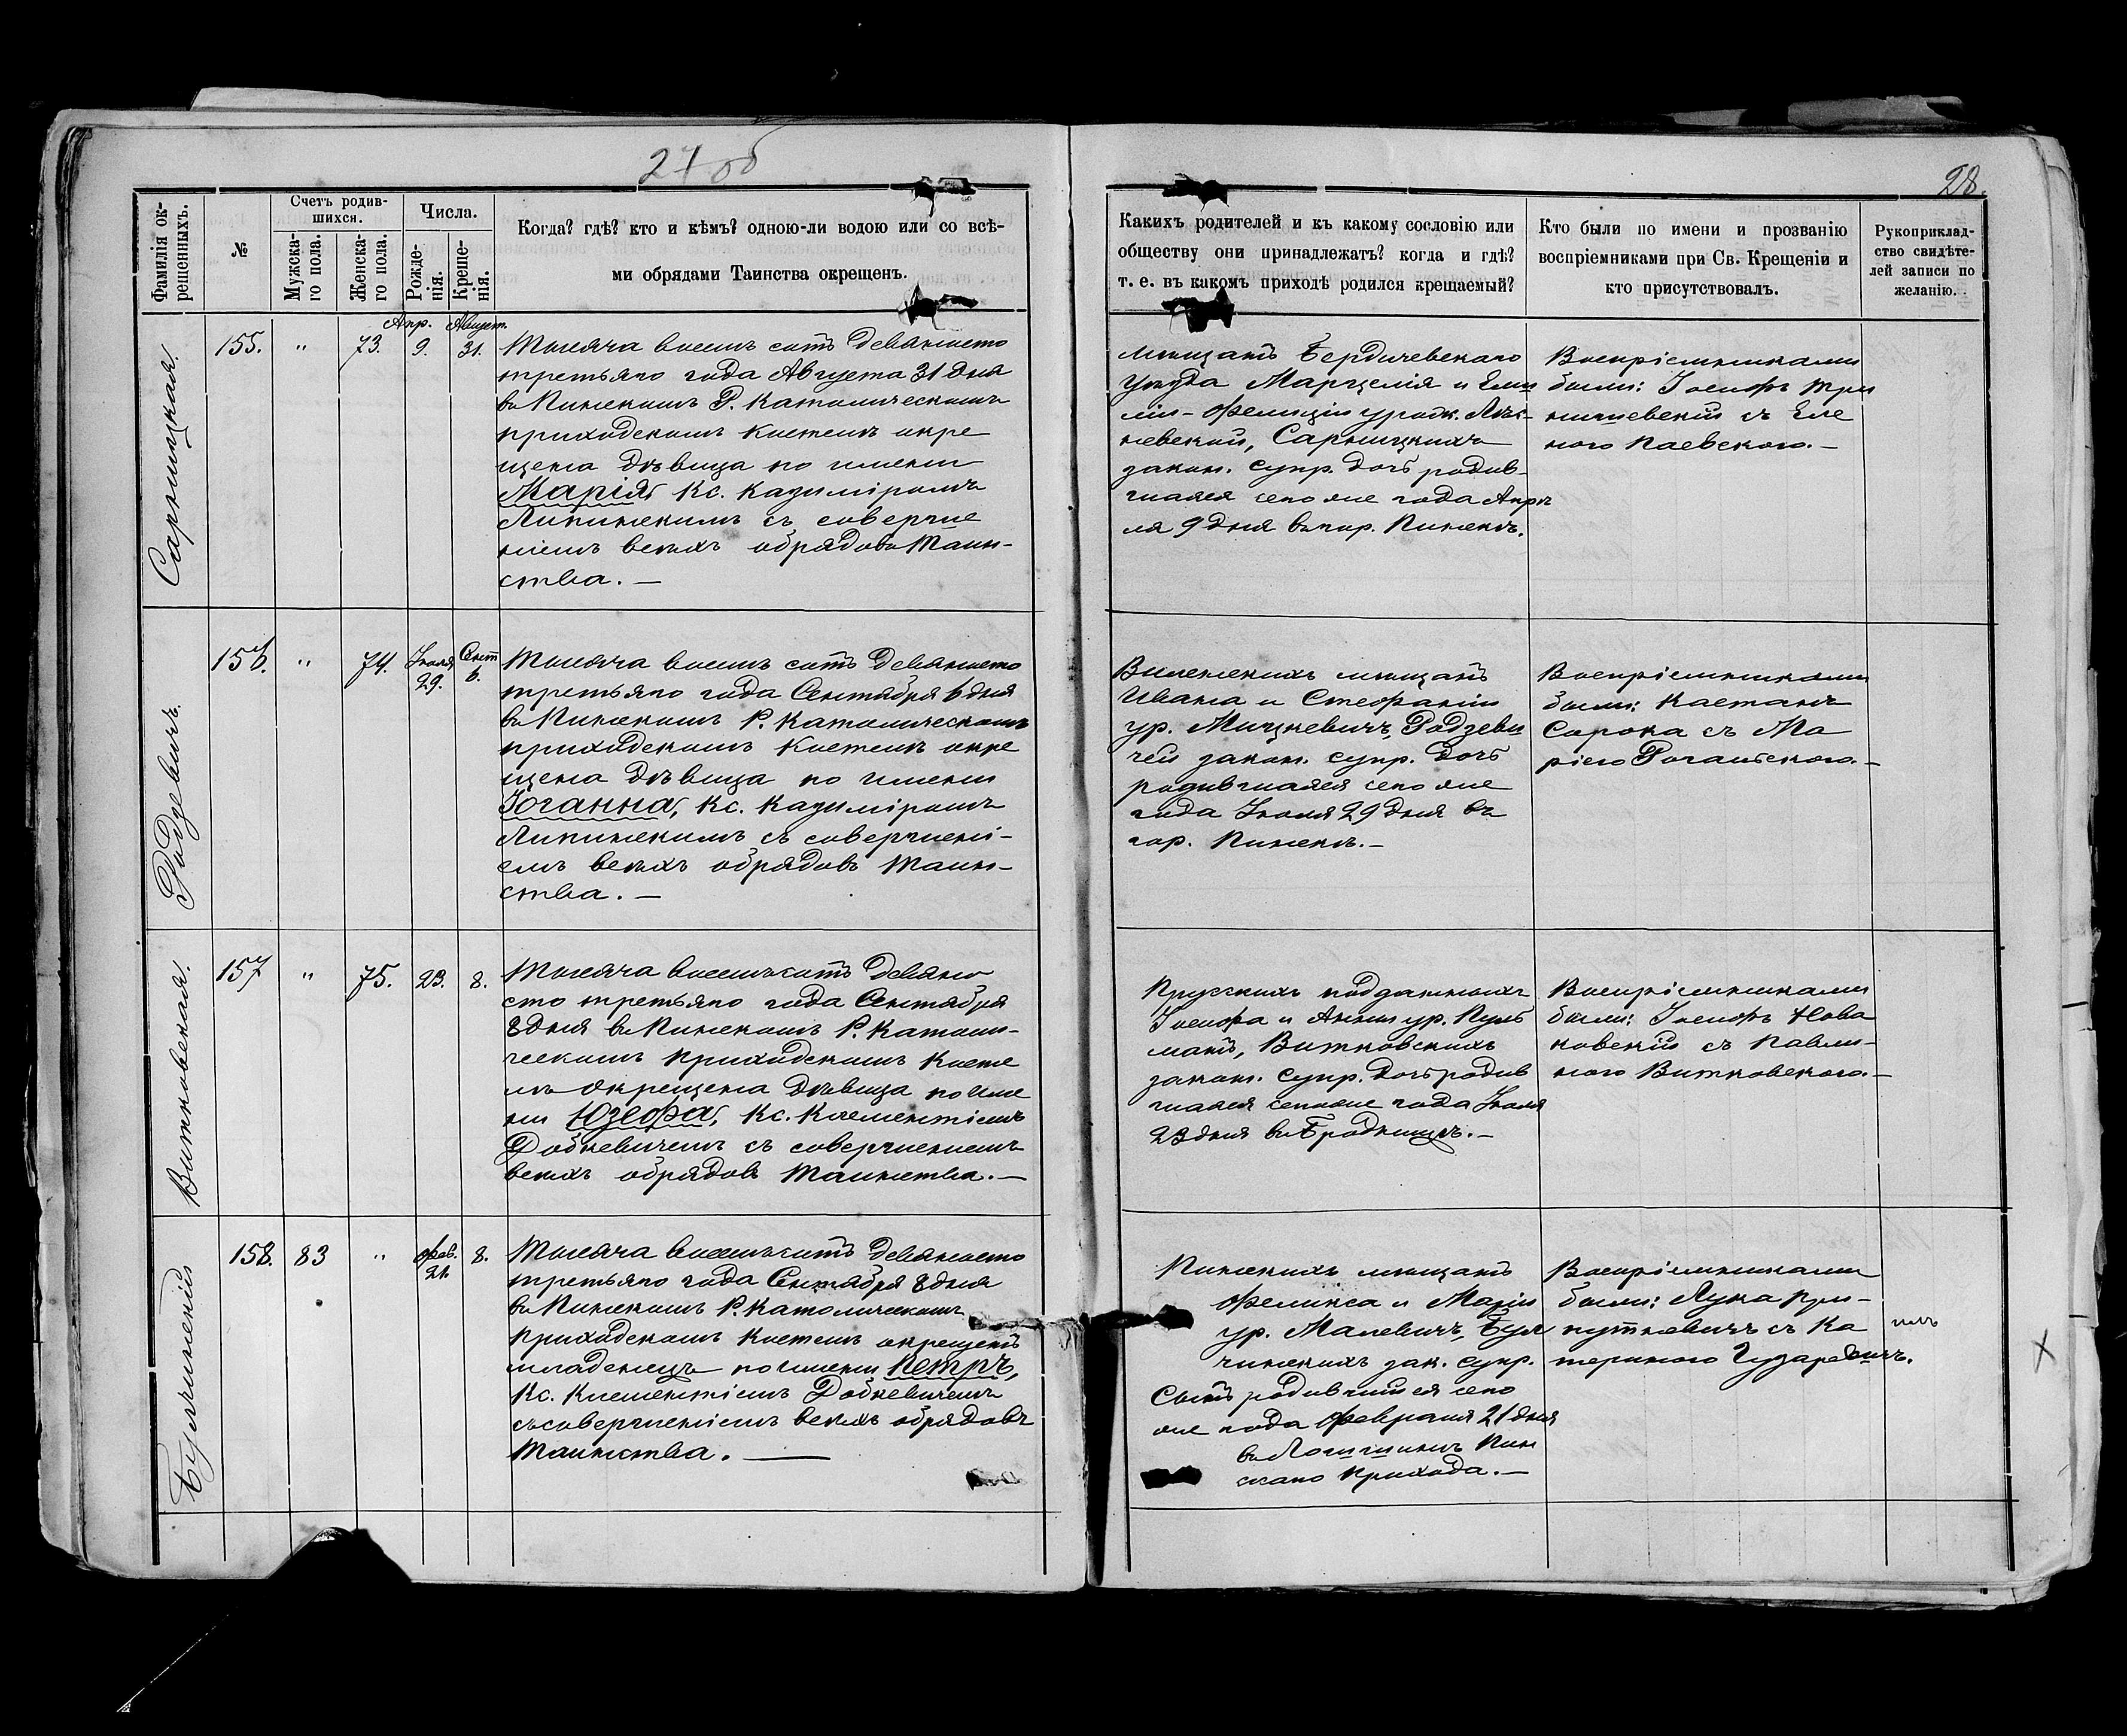 27 об
28.
Фамилія ок-
рещенныхъ.
№
Счетъ родив-
шихся.
Мужска-
го пола.
Женска-
го пола.
Числа.
Рожде-
нія.
Креще-
нія.
Когда? гдѣ? кто и кѣмъ? одною-ли водою или со всѣ-
ми обрядами Таинства окрещенъ.
Какихъ родителей и къ какому сословію или
обществу они принадлежатъ? когда и гдѣ?
т. е. въ какомъ приходѣ родился крещаемый?
Кто были по имени и прозванію
воспріемниками при Св. Крещеніи и
кто присутствовалъ.
Рукоприклад-
ство свидѣте-
лей записи по
желанію.
Сарницкая.
155.
"
73.
Апр.
9.
Август.
31.
Тысяча восемь сотъ девяносто
третьяго года Августа 31 дня
въ Пинскомъ Р. Католическомъ
приходскомъ костелѣ окре
щена дѣвица по имени
Марія, Кс. Казиміромъ
Липинскимъ съ соверше
ніемъ всѣхъ обрядовъ Таин-
ства. —
мѣщанъ Бердичевскаго
уѣзда Марцелія и Эми
ліи-Фелиціи урож.
невской, Сарницкихъ
закон. супр. дочь родив-
шаяся сего же года Апрѣ
ля 9 дня въ гор. Пинскѣ.
Воспріемниками
были: Іосифъ
съ Еле
ною Паевскою. —
Родзевичъ.
156.
"
74.
Іюля
29.
Сент
6.
Тысяча восемь сотъ девяносто
третьяго года Сентября 6 дня
въ Пинскомъ Р. Католическомъ
приходскомъ костелѣ окре
щена дѣвица по имени
Іоганна, Кс. Казиміромъ
Липинскимъ съ совершені-
емъ всѣхъ обрядовъ Таин-
ства. —
Виленскихъ мѣщанъ
Ивана и Стефаніи
ур. Мицкевичъ, Родзеви
чей закон. супр. дочь
родившаяся сего же
года Іюля 29 дня въ
гор. Пинскѣ. —
Воспріемниками
были: Каетанъ
Сорока съ Ма
ріею Рогальскою. —
Витковская.
157
"
75.
23.
8.
Тысяча восемьсотъ девяно
сто третьяго года Сентября
8 дня въ Пинскомъ Р. Католи-
ческомъ приходскомъ косте
лѣ окрещена дѣвица по име
ни Юзефа, Кс. Клементіемъ
Добкевичемъ съ совершеніемъ
всѣхъ обрядовъ Таинства. —
Прусскихъ подданныхъ
Іосифа и Анны ур. Пуль
манъ, Витковскихъ
закон. супр. дочь родив
шаяся сего же года Іюля
23 дня въ Бродницѣ. —
Воспріемниками
были: Іосифъ Нова
ковскій съ Павли-
ною Витковскою. —
Булчинскій
158.
83
"
Фев.
21.
8.
Тысяча восемьсотъ девяносто
третьяго года Сентября 8 дня
въ Пинскомъ Р. Католическомъ
приходскомъ костелѣ окрещенъ
младенецъ по имени Петръ,
Кс. Клементіемъ Добкевичемъ
съ совершеніемъ всѣхъ обрядовъ
Таинства. —
Пинскихъ мѣщанъ
Феликса и Маріи
ур. Малевичъ, Бул
чинскихъ зак. супр.
сынъ родившійся сего
же года Февраля 21 дня
въ Логишинѣ Пин
скаго прихода. —
Воспріемниками
были: Лука Гри-
путневичъ съ Ка
териною Гузаревичъ.